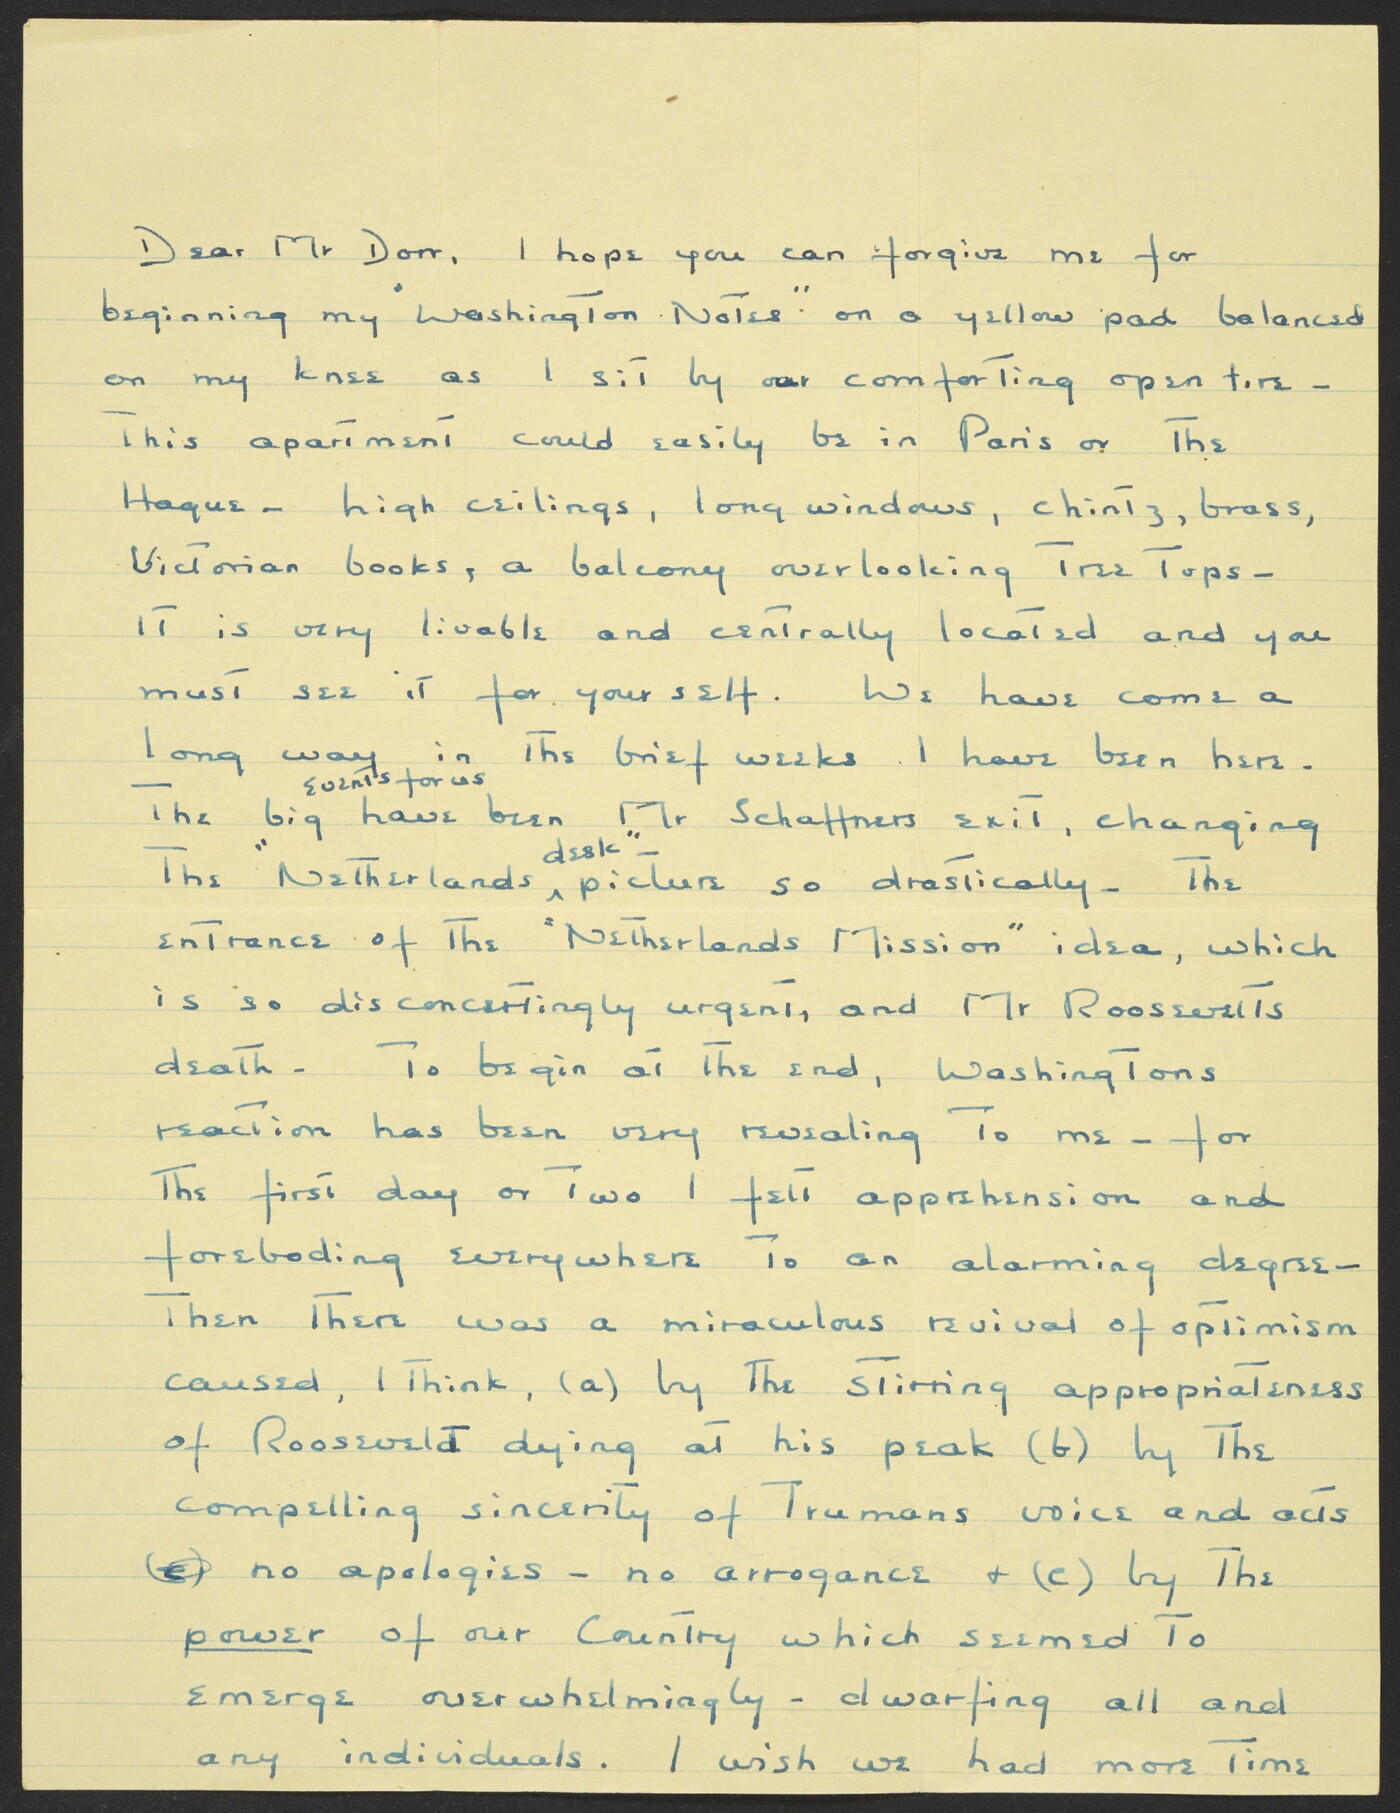 Dear Mr Dorr, I hope you can forgive me for
beginning my "Washington Notes" on a yellow pad balanced
on my knee as I sit by our comforting open fire -
This apartment could easily be in Paris or The
Hague - high ceilings, long windows, chintz, brass,
Victorian books, a balcony overlooking Tree Tops -
IT is very livable and centrally located and you
must see it for yourself. We have come a
long way in The brief weeks I have been here.
events for us
The big have been Mr Schaffners exit, changing
desk"
The "Netherlands ^ picture so drastically - The
entrance of The "Netherlands Mission" idea, which
is so disconcertingly urgent, and Mr Roosevelts
death - To begin at The end, Washingtons
reaction has been very revealing To me - for
The first day or Two I felt apprehension and
foreboding everywhere To an alarming degree -
Then There was a miraculous revival of optimism
caused, I Think, (a) by The stirring appropriateness
of Roosevelt dying at his peak (b) by The
compelling sincerity of Trumans voice and acts
(c) no apologies - no arrogance + (c) by The
power of our Country which seemed To
emerge overwhelmingly - dwarfing all and
any individuals. I wish we had more Time